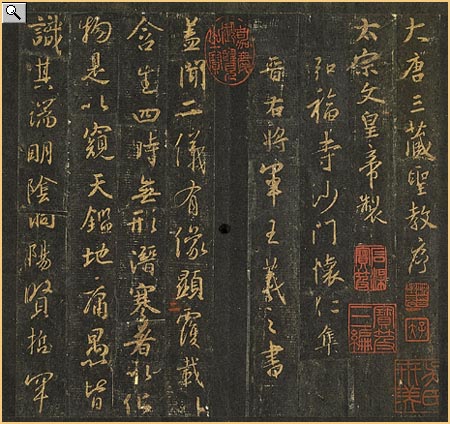 大唐三藏聖教序
太宗文皇帝製
弘福寺沙門懷仁集
晉右將軍王羲之書
蓋聞二儀有像顯覆載以
含生四時無形潛寒暑以化
物是以窺天鑑地庸愚皆
識其端明陰洞陽賢哲罕